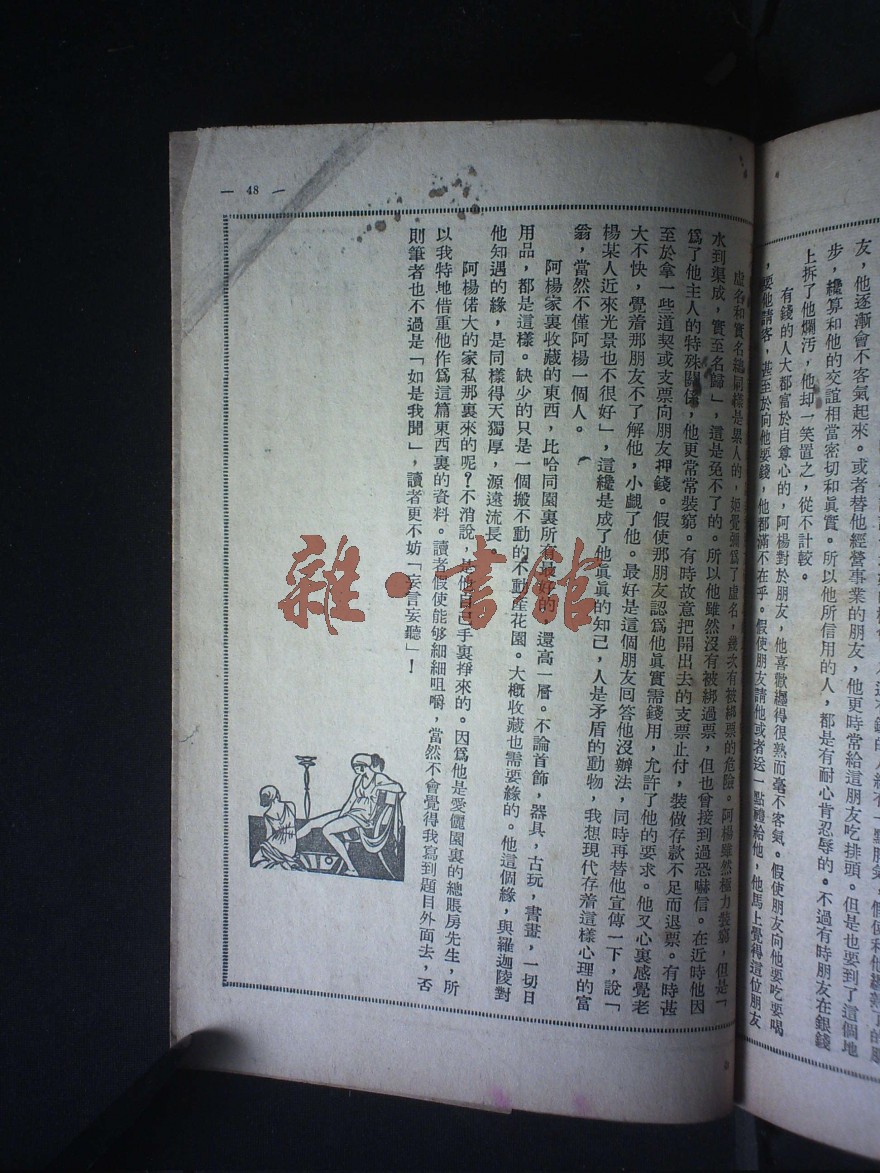 友，他逐漸會不客氣起來。或者替他經營事業的朋友，他更時常給這朋友吃排頭。但是也要到了這個地
步，纔算和他的交誼相當密切和眞實。所以他所信用的人，都是有耐心肯忍辱的。不過有時朋友在銀錢
上拆了他爛汚，他却一笑置之，從不計較。
有錢的人大都富於自尊心的，阿楊對於朋友，他喜歡纏得很熟而毫不客氣。假使朋友向他要吃要喝
，要他請客，甚至於向他要錢，他都滿不在乎。假使朋友請他或者送一點禮給他，他馬上覺得這位朋友
虛名和實名總同樣是累人的，姬覺彌爲了虛名，幾次有被綁票的危險。阿楊雖然極力裝窮，但是「
水到渠成，實至名歸」，這是免不了的。所以他雖然沒有被綁過票，但也曾接到過恐嚇信。在近時他因
爲了他主人的特殊關係，他更常常裝窮。有時故意把開出去的支票止付，裝做存款不足而退票。有時甚
至於拿一些道契或支票向朋友押錢。假使那朋友認爲他眞實需錢用，允許了他的要求。他又心裏感覺老
大不快，覺着那朋友不了解他，小覷了他。最好是這個朋友回答他沒辦法，同時再替他宣傳一下，說「
楊某人近來光景也不很好」，這纔是成了他眞眞的知己，人是矛盾的動物，我想現代存着這樣心理的富
翁，當然不僅阿楊一個人。
阿楊家裏收藏的東西，比哈同園裏所有最好的，還高一層。不論首飾，器具，古玩，書畫，一切日
用品，都是這樣。缺少的只是一個搬不動的不動產花園。大槪收藏也需要緣的。他這個緣，與羅迦陵對
他知遇的緣，是同樣得天獨厚，源遠流長。
阿楊偌大的家私那裏來的呢？不消說，是他自己手裏掙來的。因爲他是愛儷園裏的總賬房先生，所
以我特地借重他作爲這篇東西裏的資料。讀者假使能够細細咀嚼，當然不會覺得我寫到題目外面去，否
則筆者也不過是「如是我聞」，讀者更不妨「妄言妄聽」！
— 48 —
雜·書館